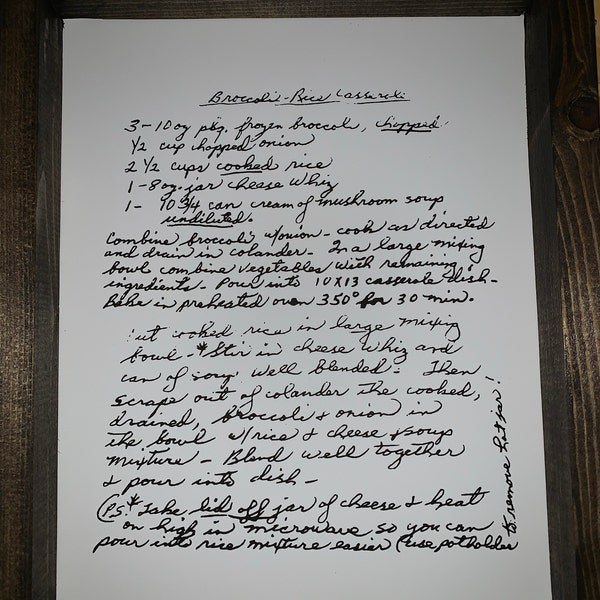 Broccoli-Rice Casserole
3-10oz pkg. frozen broccoli, chopped
1/2 cup chopped onion
2 1/2 cups cooked rice
1-8oz. jar cheese whiz
1- 10 3/4 can cream of mushroom soup
undiluted.
Combine broccoli w/onion - cook as directed
and drain in colander - In a large mixing
bowl combine vegetables with remaining
ingredients - Pour into 10X13 casserole dish -
Bake in preheated oven 350° for 30 min.
Put cooked rice in large mixing
bowl - *Stir in cheese whiz and
can of soup well blended - Then
scrape out of colander the cooked,
drained, broccoli & onion in
the bowl w/rice & cheese & soup
mixture - Blend well together
& pour into dish -
(P.S.* Take lid off jar of cheese & heat
on high in microwave so you can
pour into rice mixture easier (use potholder
to remove hot jar!